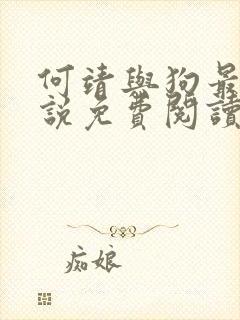 何靖與狗最
說免費閱讀
痴娘